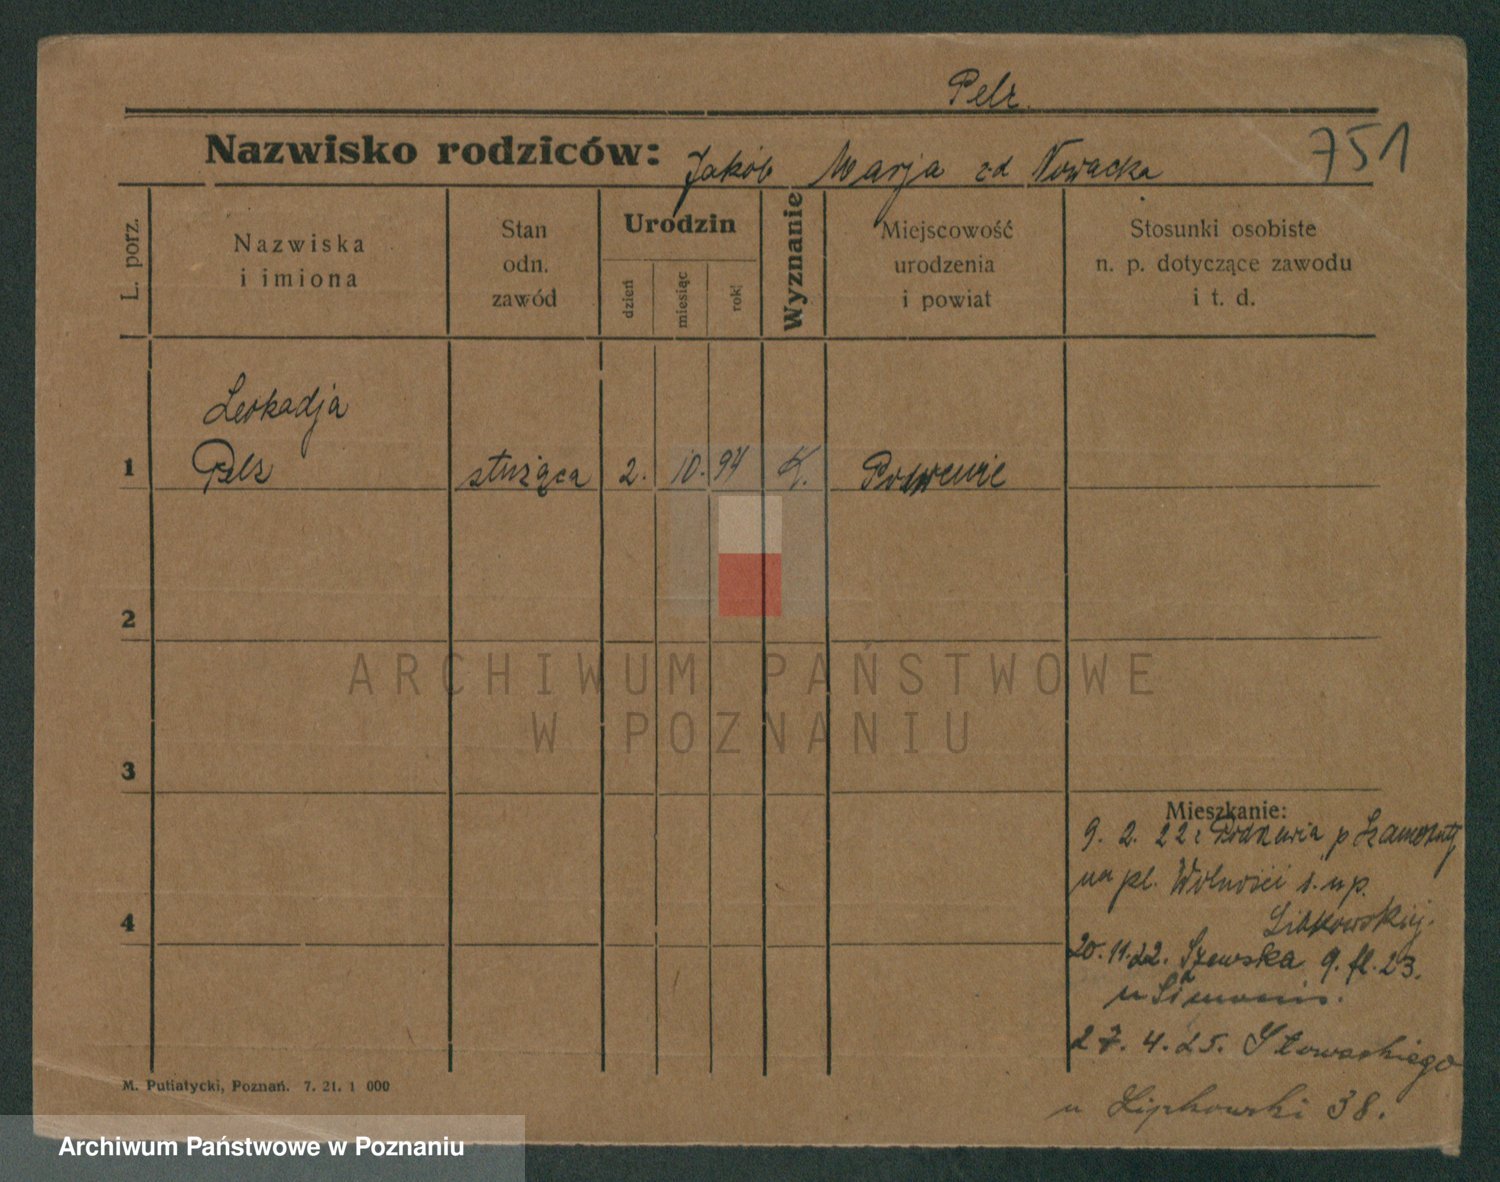 Pelz.
Nazwisko rodziców: Jakób Marja zd Nowacka
751
L. porz.
Nazwiska
i imiona
Stan
odn.
zawód
Urodzin
dzień
miesiąc
rok
Wyznanie
Miejscowość
urodzenia
i powiat
Stosunki osobiste
n. p. dotyczące zawodu
i t. d.
Leokadja
1 Pelz służąca 2. 10. 94 K.
2
3
4
Mieszkanie:
9. 2. 22 p Szamotuły
na pl. Wolności
20. 11. 22. Szewska 9. fl. 23.
u
27. 4. 25. Słowackiego
u Lipkowski 38.
M. Putiatycki, Poznań. 7. 21. 1 000
ARCHIWUM PAŃSTWOWE
W POZNANIU
Archiwum Państwowe w Poznaniu